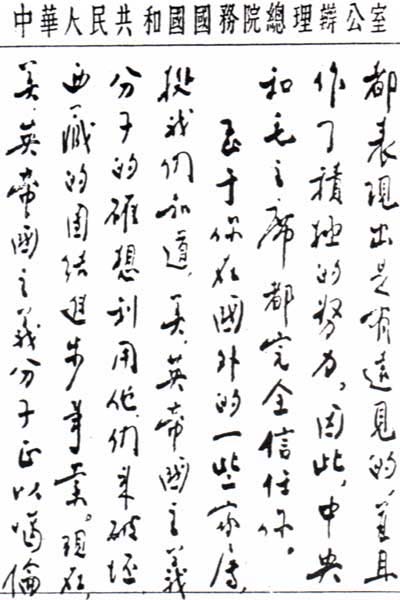 中華人民共和國國務院總理辦公室
都表現出是有遠見的，並且
作了積極的努力，因此，中央
和毛主席都完全信任你。
至于你在國外的一些家屬，
據我们知道，美、英帝國主義
分子的確想利用他们来破坏
西藏的團结進步事業。現在，
美、英帝國主義分子正以噶倫